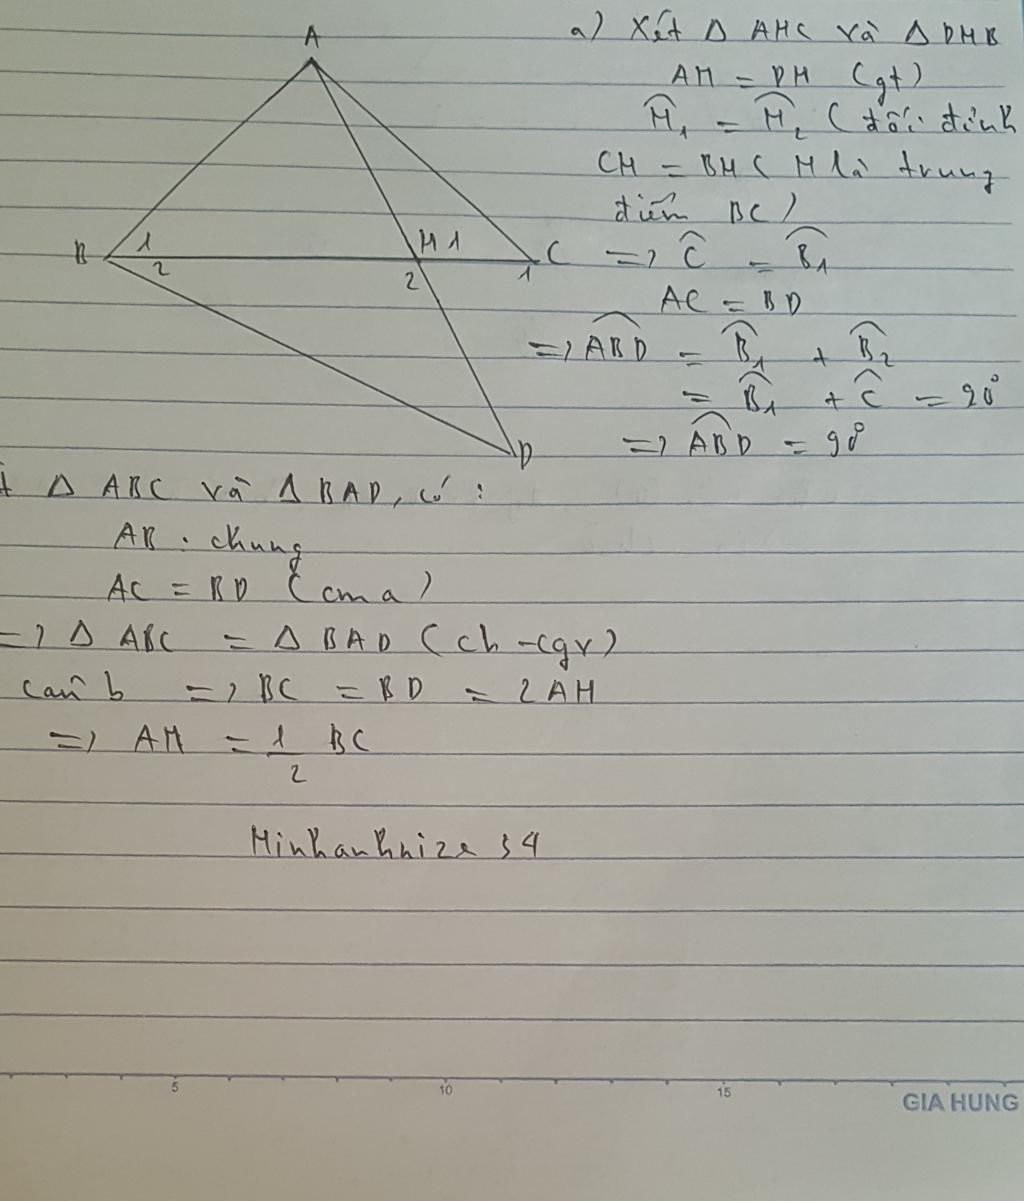 A
B 1 2
M 1
2
1 C
D
a) Xét Δ AMC và Δ DMB
AM = DM (gt)
M̂₁ = M̂₂ (đối đỉnh
CM = BM ( M là trung
điểm BC )
=> Ĉ = B̂₁
AC = BD
=> ABD = B̂₁ + B̂₂
= B̂₁ + Ĉ = 90°
=> ABD = 90°
Δ ABC và Δ BAD, có :
AB : chung
AC = BD (cm a)
=> Δ ABC = Δ BAD (ch - cgv)
=> BC = BD = 2 AM
=> AM = 1/2 BC
5 10 15
GIA HUNG